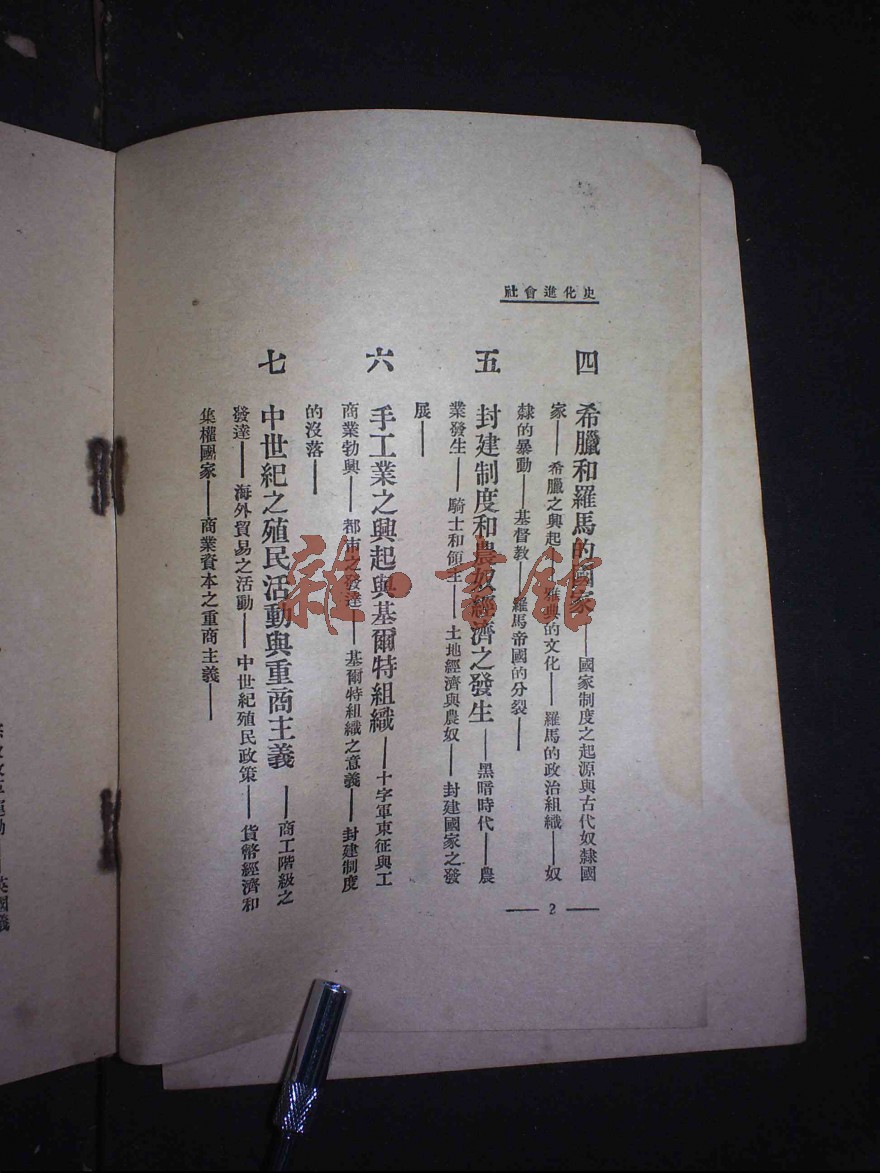 社會進化史
四
希臘和羅馬的國家——國家制度之起源與古代奴隸國
家——希臘之興起——雅典的文化——羅馬的政治組織——奴
隸的暴動——基督教——羅馬帝國的分裂——
五
封建制度和農奴經濟之發生——黑暗時代——農
業發生——騎士和領主——土地經濟與農奴——封建國家之發
展——
六
手工業之興起與基爾特組織——十字軍東征與工
商業勃興——都市之發達——基爾特組織之意義——封建制度
的沒落——
七
中世紀之殖民活動與重商主義——商工階級之
發達——海外貿易之活動——中世紀殖民政策——貨幣經濟和
集權國家——商業資本之重商主義——
— 2 —
雜·書館
英國義